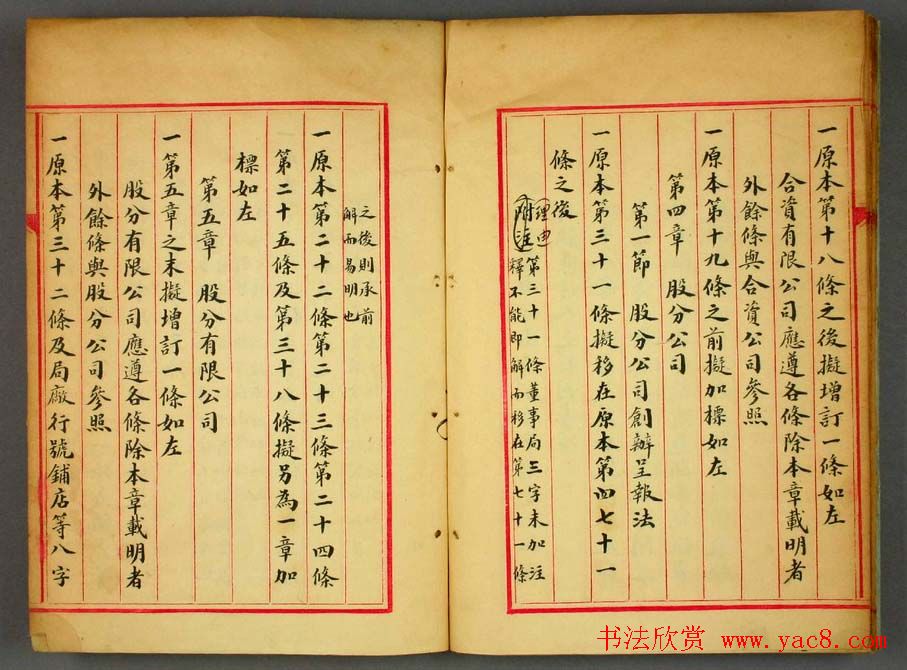 一原本第十八條之後擬增訂一條如左
合資有限公司應遵各條除本章載明者
外餘條與合資公司參照
一原本第十九條之前擬加標如左
第四章 股分公司
第一節 股分公司創辦呈報法
一原本第三十一條擬移在原本第四七十一
條之後
理由
附注
第三十一條董事局三字未加注
釋不能即解而移在第七十一條
之後則承前
解而易明也
一原本第二十二條第二十三條第二十四條
第二十五條及第三十八條擬另為一章加
標如左
第五章 股分有限公司
一第五章之末擬增訂一條如左
股分有限公司應遵各條除本章載明者
外餘條與股分公司參照
一原本第三十二條及局廠行號鋪店等八字
书法欣赏 www.yac8.com